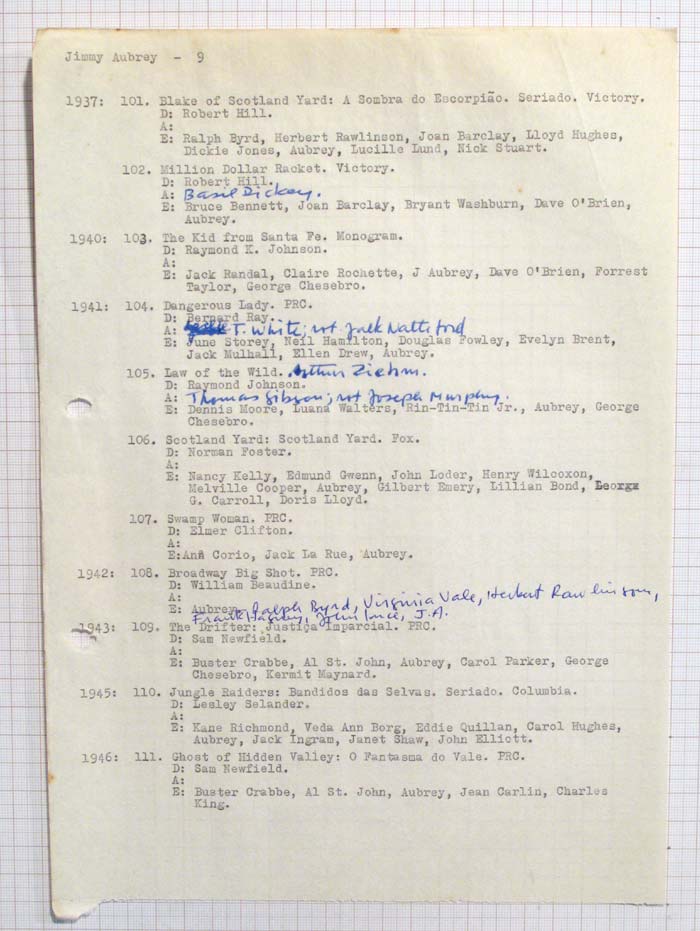 Jimmy Aubrey - 9
1937: 101. Blake of Scotland Yard: A Sombra do Escorpião. Seriado. Victory.
D: Robert Hill.
A:
E: Ralph Byrd, Herbert Rawlinson, Joan Barclay, Lloyd Hughes,
Dickie Jones, Aubrey, Lucille Lund, Nick Stuart.
102. Million Dollar Racket. Victory.
D: Robert Hill.
A: Basil Dickey.
E: Bruce Bennett, Joan Barclay, Bryant Washburn, Dave O'Brien,
Aubrey.
1940: 103. The Kid from Santa Fe. Monogram.
D: Raymond K. Johnson.
A:
E: Jack Randal, Claire Rochette, J Aubrey, Dave O'Brien, Forrest
Taylor, George Chesebro.
1941: 104. Dangerous Lady. PRC.
D: Bernard Ray.
A: T. White; not Jack Natteford
E: June Storey, Neil Hamilton, Douglas Fowley, Evelyn Brent,
Jack Mulhall, Ellen Drew, Aubrey.
105. Law of the Wild. Arthur Ziehm.
D: Raymond Johnson.
A: Thomas Gibson; not Joseph Murphy.
E: Dennis Moore, Luana Walters, Rin-Tin-Tin Jr., Aubrey, George
Chesebro.
106. Scotland Yard: Scotland Yard. Fox.
D: Norman Foster.
A:
E: Nancy Kelly, Edmund Gwenn, John Loder, Henry Wilcoxon,
Melville Cooper, Aubrey, Gilbert Emery, Lillian Bond, George
G. Carroll, Doris Lloyd.
107. Swamp Woman. PRC.
D: Elmer Clifton.
A:
E:Ann Corio, Jack La Rue, Aubrey.
1942: 108. Broadway Big Shot. PRC.
D: William Beaudine.
A:
E: Aubrey. Ralph Byrd, Virginia Vale, Herbert Rawlinson,
Frank Hagney, John Ince, J.A.
1943: 109. The Drifter: Justiça Imparcial. PRC.
D: Sam Newfield.
A:
E: Buster Crabbe, Al St. John, Aubrey, Carol Parker, George
Chesebro, Kermit Maynard.
1945: 110. Jungle Raiders: Bandidos das Selvas. Seriado. Columbia.
D: Lesley Selander.
A:
E: Kane Richmond, Veda Ann Borg, Eddie Quillan, Carol Hughes,
Aubrey, Jack Ingram, Janet Shaw, John Elliott.
1946: 111. Ghost of Hidden Valley: O Fantasma do Vale. PRC.
D: Sam Newfield.
A:
E: Buster Crabbe, Al St. John, Aubrey, Jean Carlin, Charles
King.